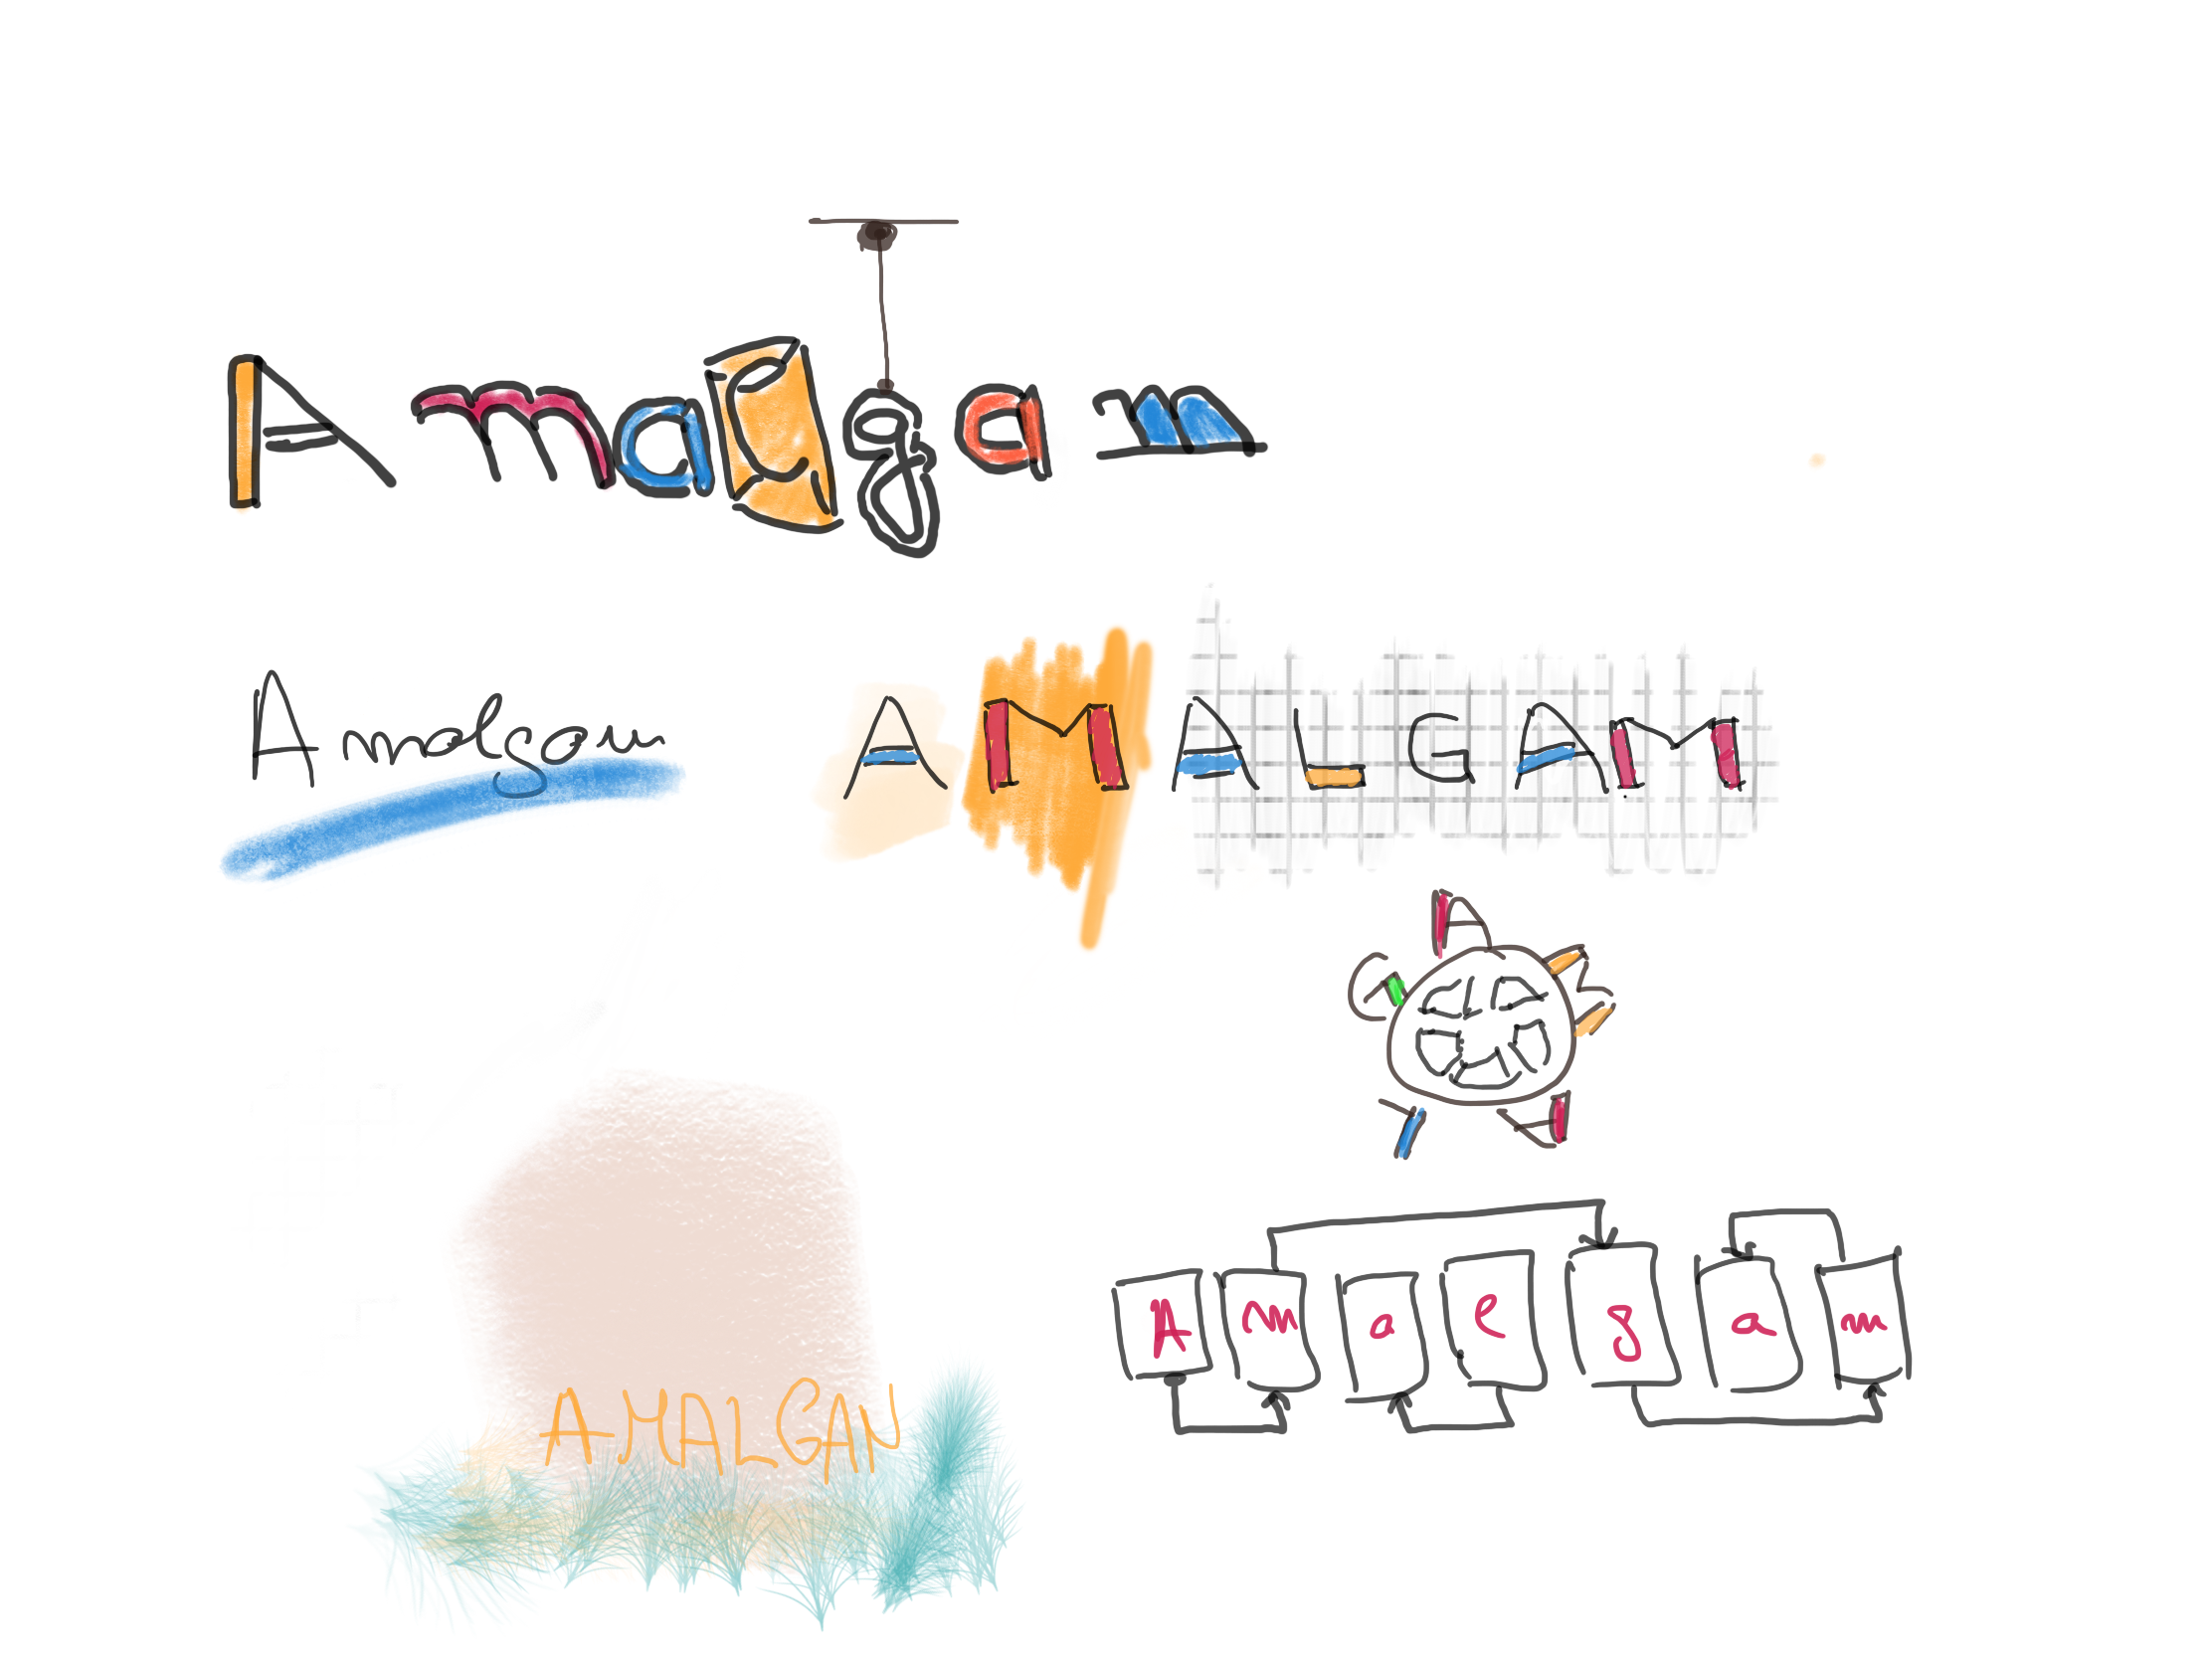 Amalgam
Amalgam
AMALGAM
AMALGAN
Amalgam